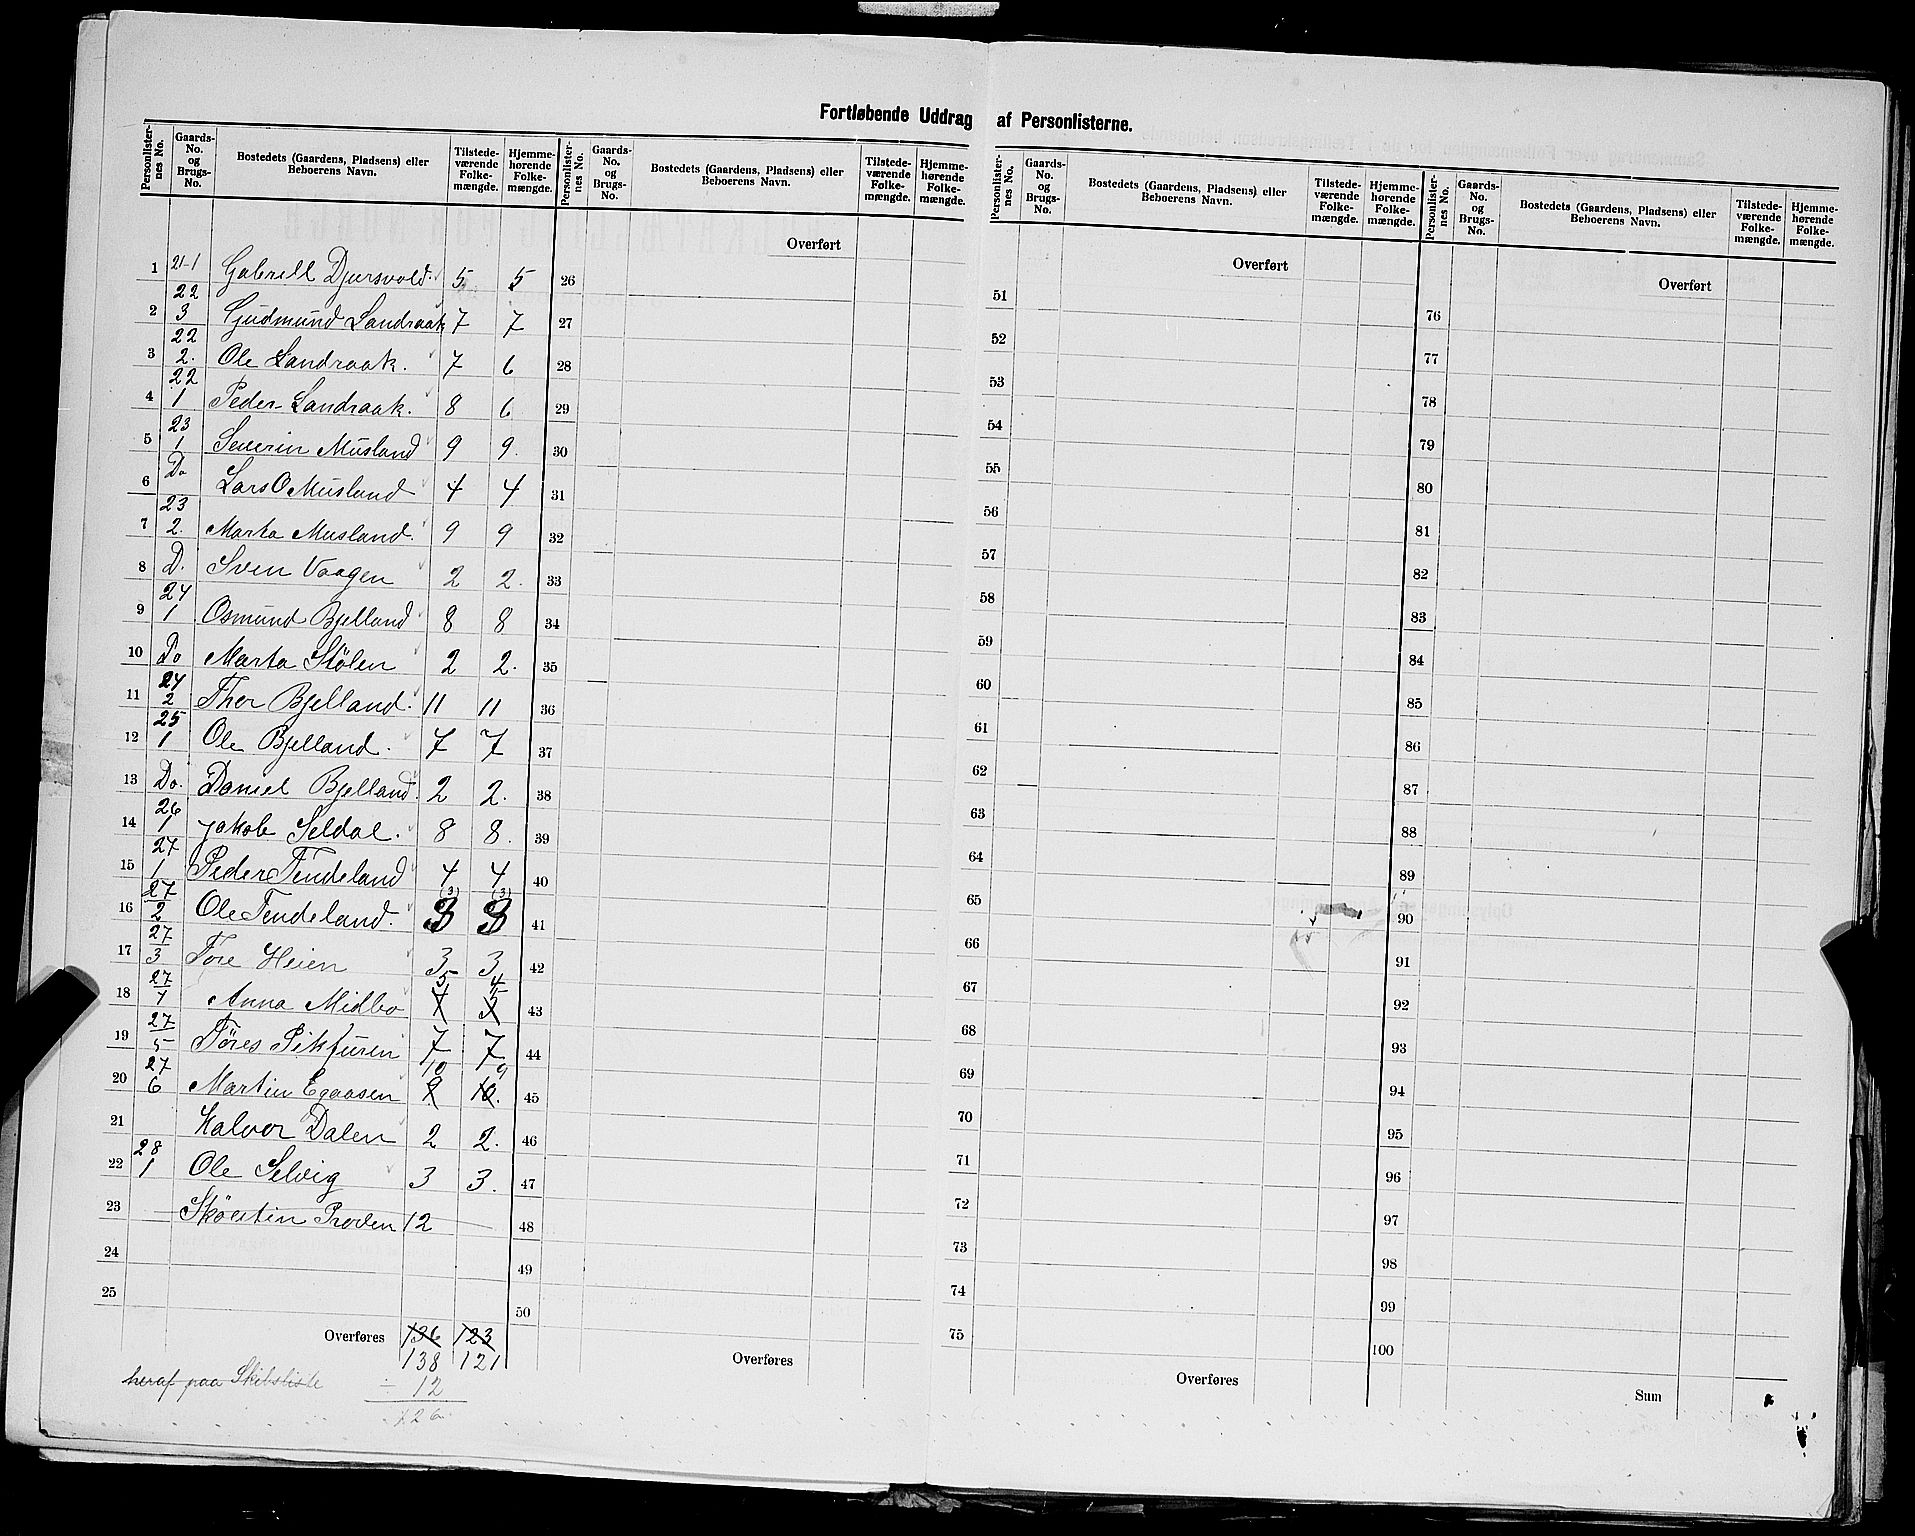 Fortløbende Uddrag af Personlisterne.
Personlister-nes No. | Gaards-No. og Brugs-No. | Bostedets (Gaardens, Pladsens) eller Beboerens Navn. | Tilstede-værende Folke-mængde. | Hjemme-hørende Folke-mængde.
Personlister-nes No. | Gaards-No. og Brugs-No. | Bostedets (Gaardens, Pladsens) eller Beboerens Navn. | Tilstede-værende Folke-mængde. | Hjemme-hørende Folke-mængde.
Personlister-nes No. | Gaards-No. og Brugs-No. | Bostedets (Gaardens, Pladsens) eller Beboerens Navn. | Tilstede-værende Folke-mængde. | Hjemme-hørende Folke-mængde.
Personlister-nes No. | Gaards-No. og Brugs-No. | Bostedets (Gaardens, Pladsens) eller Beboerens Navn. | Tilstede-værende Folke-mængde. | Hjemme-hørende Folke-mængde.
Overført
Overført
Overført
1 21-1 Gabriell Djursvold. 5 5 26 51 76
2 22/3 Gudmund Landraak 7 7 27 52 77
3 22/2. Ole Landraak. 7 6 28 53 78
4 22/1 Peder Landraak. 8 6 29 54 79
5 23/1 Severin Musland 9 9. 30 55 80
6 Do Lars O Musland 4 4 31 56 81
7 23/2. Marta Musland. 9 9 32 57 82
8 D. Sven Vaagen 2 2. 33 58 83
9 24/1 Osmund Bjelland 8 8 34 59 84
10 Do Marta Stölen 2 2. 35 60 85
11 24/2 Thor Bjelland. 11 11 36 61 86
12 25/1 Ole Bjelland. 7 7 37 62 87
13 Do. Daniel Bjelland. 2 2. 38 63 88
14 26/1 Jakob Seldal. 8 8. 39 64 89
15 27/1 Peder Tendeland 4 4 40 65 90
16 27/2 Ole Tendeland. (3) 3 (3) 3 41 66 91
17 27/3 Tore Heien 3 3 42 67 92
18 27/4 Anna Midbø 5 4 43 68 93
19 27/5 Töres Sikfuren 7 7 44 69 94
20 27/6 Martin Egaasen 10 9 10. 45 70 95
21 Halvor Dalen 2 2. 46 71 96
22 28/1 Ole Selvig 3 3. 47 72 97
23 12 48 73 98
24 49 74 99
25 50 75 100
Overføres 136 123
138 121
Overføres
Overføres
Sum
heraf paa Skibsliste ÷ 12
126